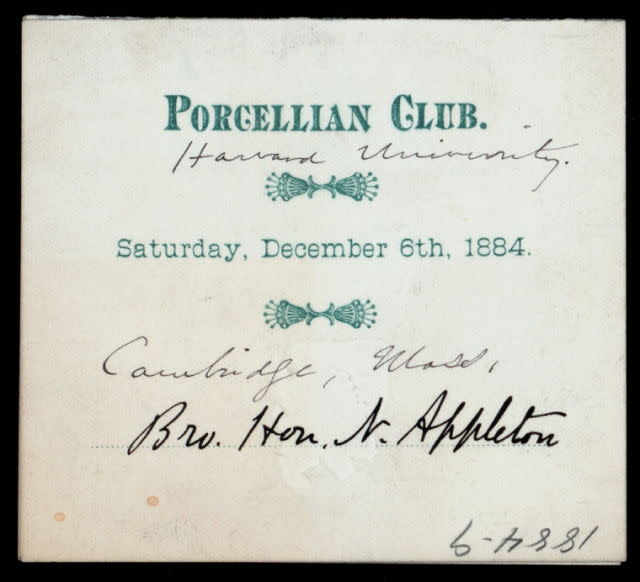 PORCELLIAN CLUB.
Harvard University.
Saturday, December 6th, 1884.
Cambridge, Mass.
Bro. Hon. N. Appleton
1884-9